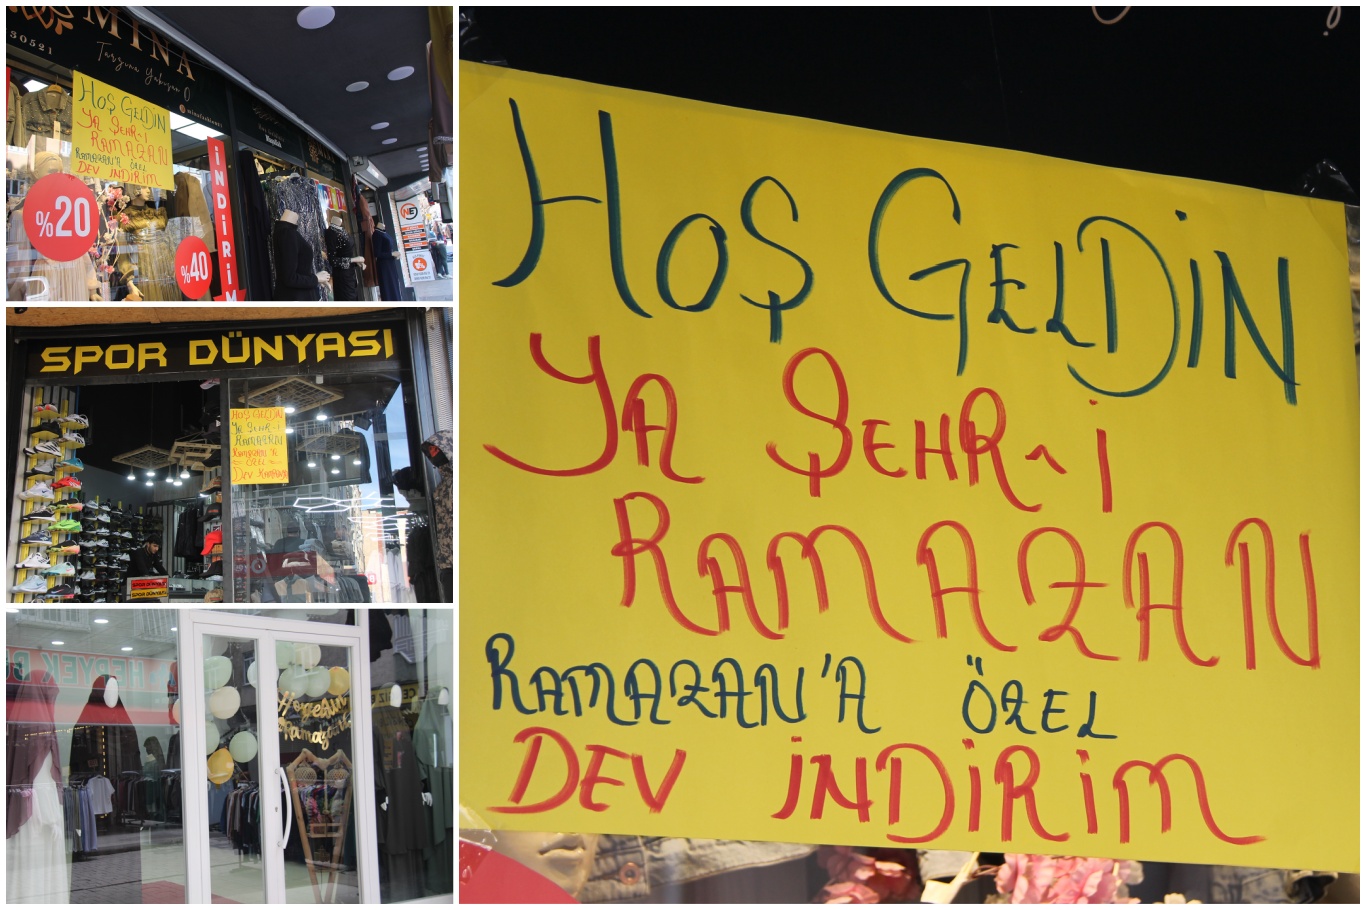 MINA
30521
Tarzına Yakışan O
HOŞ GELDİN
YA ŞEHR-İ
RAMAZAN
RAMAZAN'A ÖZEL
DEV İNDİRİM
%20
%40
İNDİRİM
SPOR DÜNYASI
HOŞ GELDİN
YA ŞEHR-İ
RAMAZAN
RAMAZAN'A
ÖZEL
DEV KAMPANYA
SPOR DÜNYASI
SPOR DÜNYASI
HEDYEK
Hoşgeldin
Ramazan
HOŞ GELDİN
YA ŞEHR-İ
RAMAZAN
RAMAZAN'A ÖZEL
DEV İNDİRİM